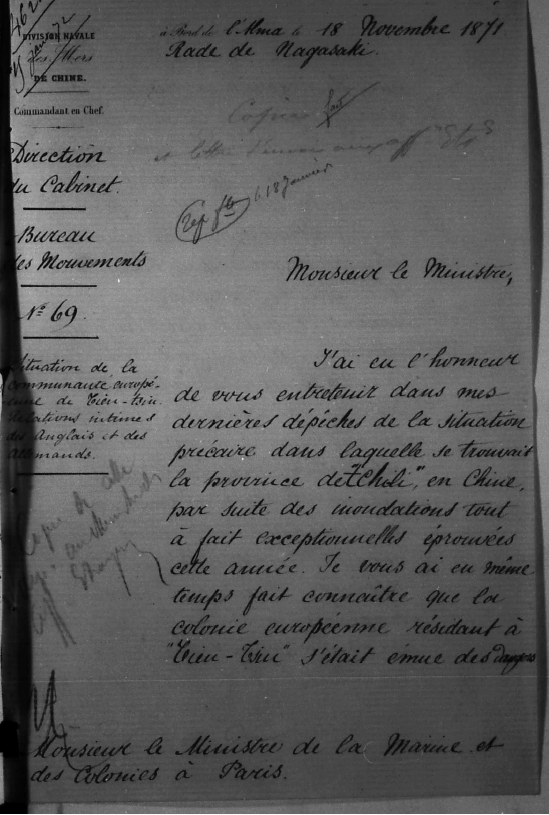 DIVISION NAVALE
des Mers
DE CHINE.
Commandant en Chef.
Direction
du Cabinet.
Bureau
des Mouvements
N° 69.
Situation de la
communauté europé-
enne de Tien-Tsin.
Relations intimes
des Anglais et des
Allemands.
à Bord de l'Alma le 18 Novembre 1871
Rade de Nagasaki.
Copie
18 Janvier
Monsieur le Ministre,
J'ai eu l'honneur
de vous entretenir dans mes
dernières dépêches de la situation
précaire dans laquelle se trouvait
la province de "Tchili", en Chine,
par suite des inondations tout
à fait exceptionnelles éprouvées
cette année. Je vous ai en même
temps fait connaître que la
colonie européenne résidant à
"Tien-Tsin" s'était émue des dangers
Monsieur le Ministre de la Marine et
des Colonies à Paris.